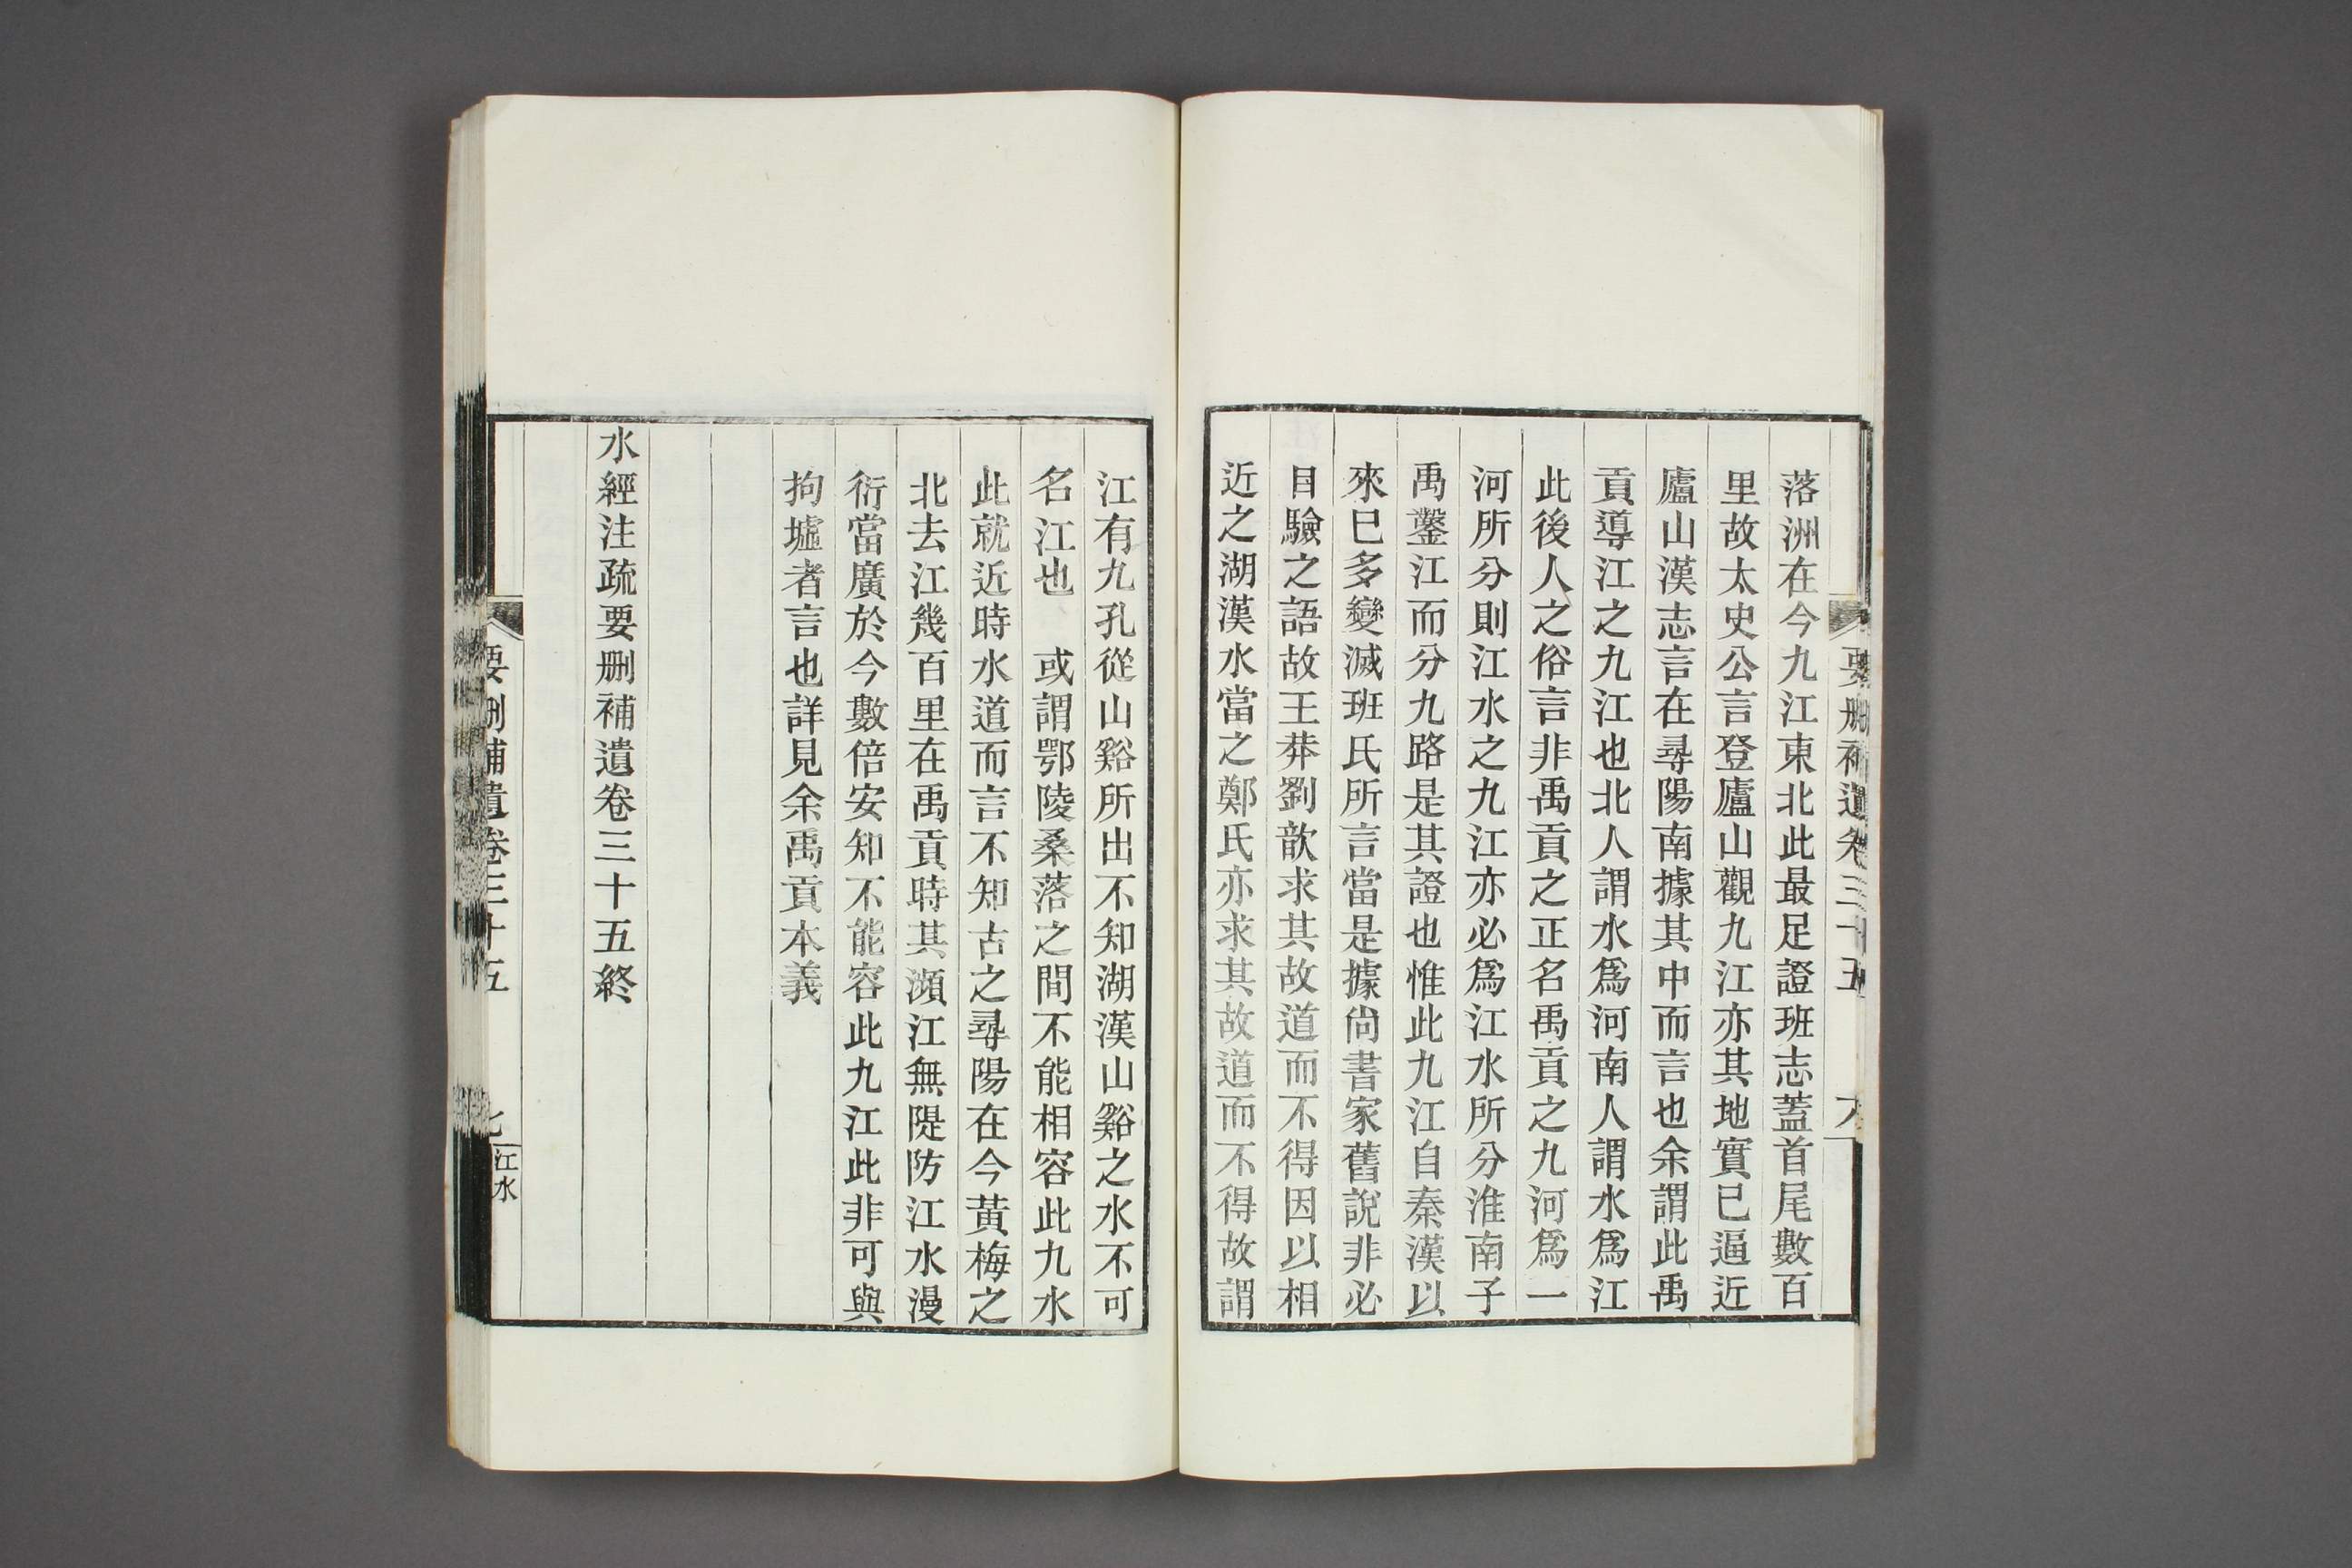 要刪補遺卷三十五
落洲在今九江東北此最足證班志蓋首尾數百
里故太史公言登廬山觀九江亦其地實已逼近
廬山漢志言在尋陽南據其中而言也余謂此禹
貢導江之九江也北人謂水爲河南人謂水爲江
此後人之俗言非禹貢之正名禹貢之九河爲一
河所分則江水之九江亦必爲江水所分淮南子
禹鑿江而分九路是其證也惟此九江自秦漢以
來已多變滅班氏所言當是據尙書家舊說非必
目驗之語故王莽劉歆求其故道而不得因以相
近之湖漢水當之鄭氏亦求其故道而不得故謂
江有九孔從山谿所出不知湖漢山谿之水不可
名江也　或謂鄂陵桑落之間不能相容此九水
此就近時水道而言不知古之尋陽在今黃梅之
北去江幾百里在禹貢時其瀕江無隄防江水漫
衍當廣於今數倍安知不能容此九江此非可與
拘墟者言也詳見余禹貢本義
水經注疏要刪補遺卷三十五終
要刪補遺卷三十五
七
江水